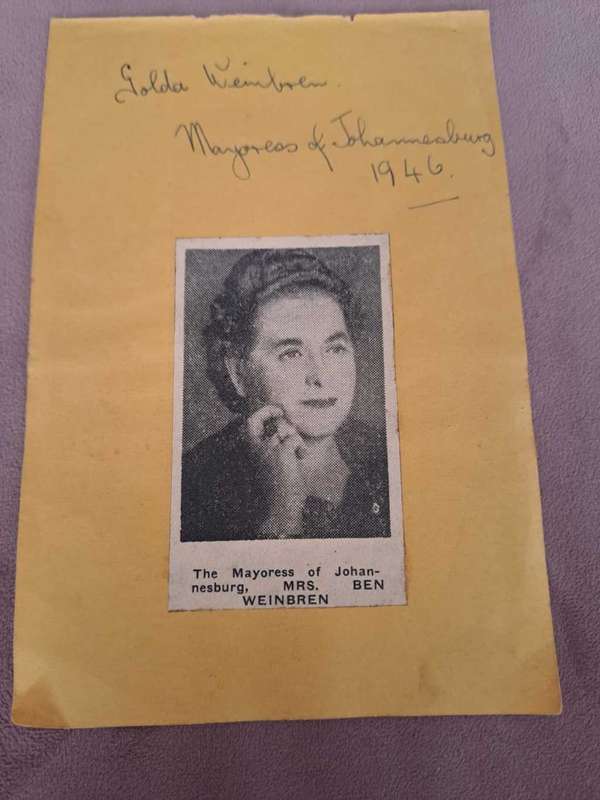 Golda Weinbren.
Mayoress of Johannesburg
1946.
The Mayoress of Johan-
nesburg, MRS. BEN
WEINBREN